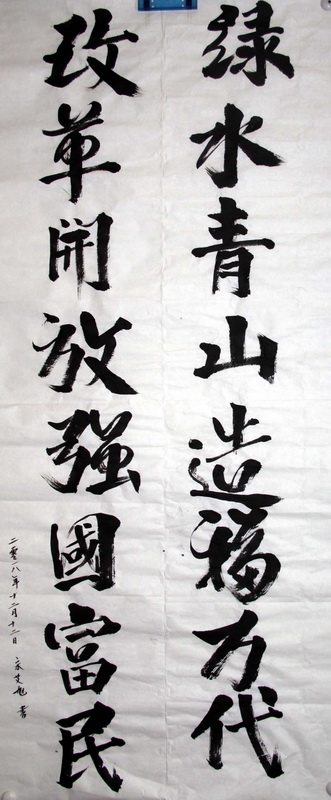 绿水青山造福万代
改革開放强國富民
二零一八年十二月十二日 書